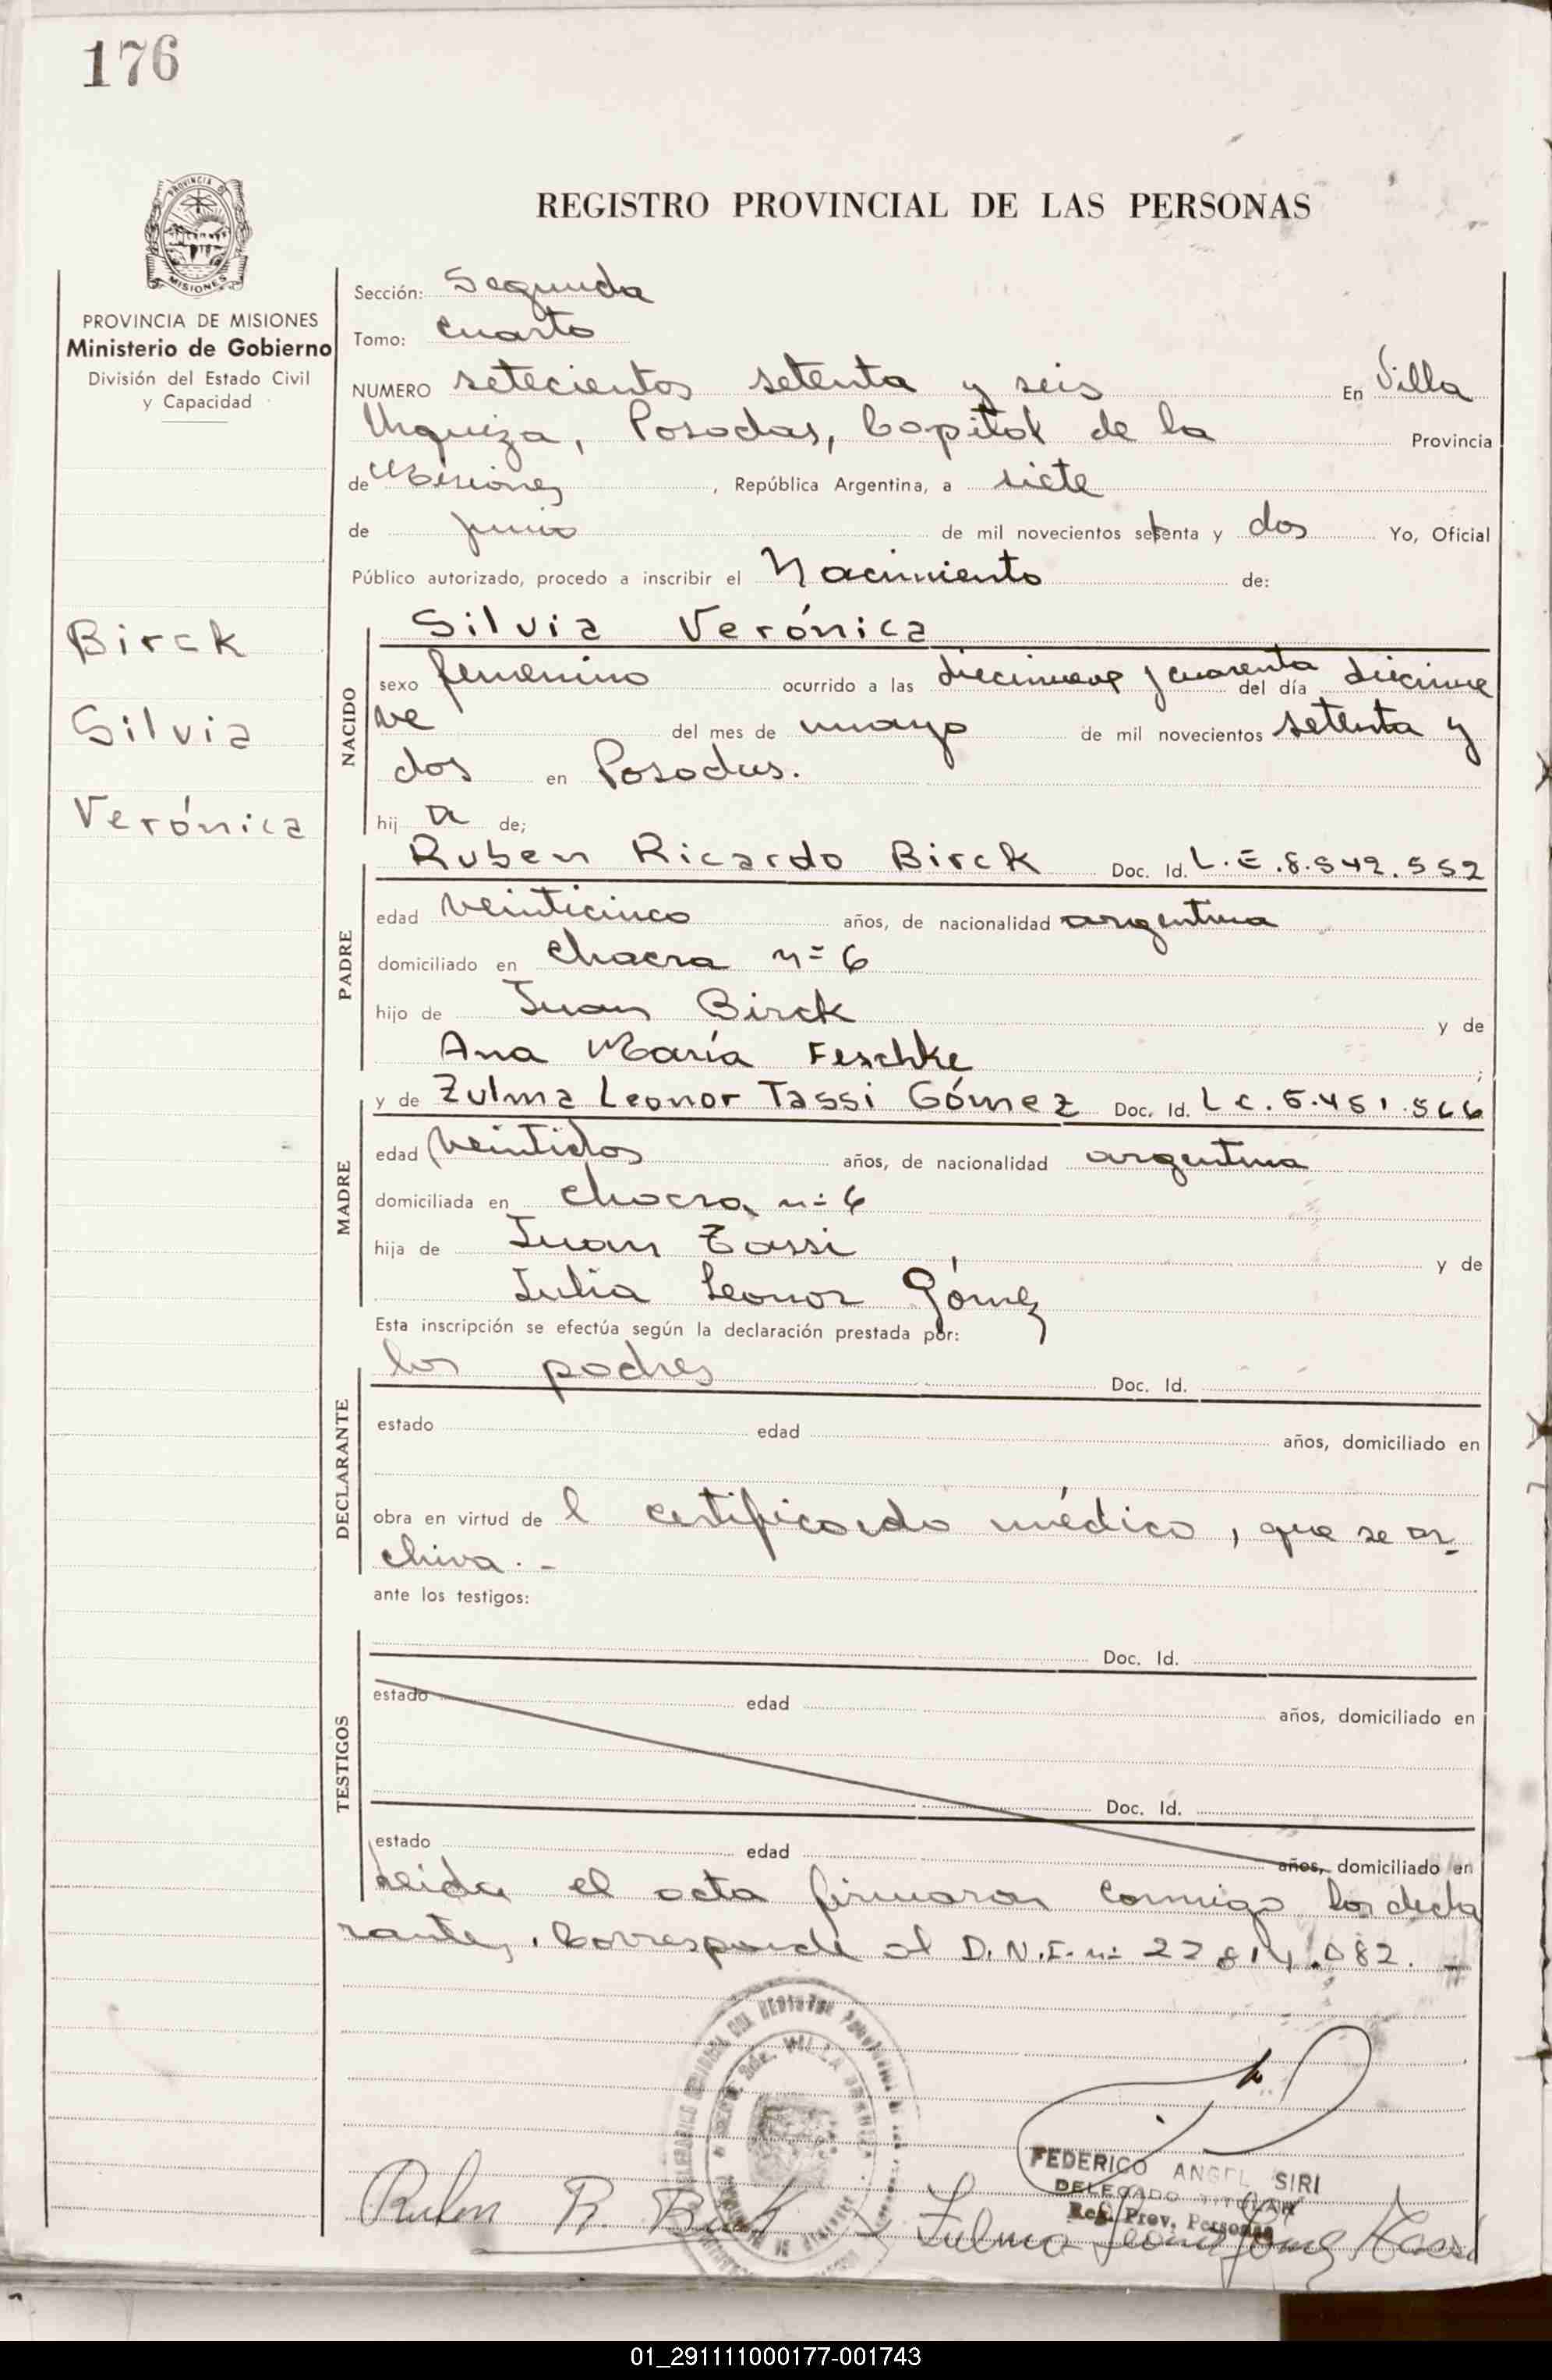 176
PROVINCIA DE MISIONES
REGISTRO PROVINCIAL DE LAS PERSONAS
PROVINCIA DE MISIONES
Ministerio de Gobierno
División del Estado Civil
y Capacidad
Sección: Segunda
Tomo: cuarto
NUMERO setecientos setenta y seis En Villa
Urquiza, Posadas, Capital de la Provincia
de Misiones, República Argentina, a siete
de junio de mil novecientos setenta y dos Yo, Oficial
Público autorizado, procedo a inscribir el Nacimiento de:
Birck
Silvia
Verónica
NACIDO
Silvia Verónica
sexo femenino ocurrido a las diecinueve y cuarenta del día diecinue
ve del mes de mayo de mil novecientos setenta y
dos en Posadas.
hij a de;
PADRE
Ruben Ricardo Birck Doc. Id. L.E.8.542.552
edad veinticinco años, de nacionalidad argentina
domiciliado en chacra n= 6
hijo de Juan Birck y de
Ana María Feschke;
MADRE
y de Zulma Leonor Tassi Gómez Doc. Id. L C. 6.451.566
edad veintidos años, de nacionalidad argentina
domiciliada en chacra n= 6
hija de Juan Tassi y de
Julia Leonor Gómez
Esta inscripción se efectúa según la declaración prestada por:
DECLARANTE
los padres Doc. Id.
estado edad años, domiciliado en
obra en virtud de l certificado médico, que se ar
chiva. -
ante los testigos:
TESTIGOS
Doc. Id.
estado edad años, domiciliado en
Doc. Id.
estado edad años, domiciliado en
Leida el acta firmaron conmigo los decla
rantes. Corresponde al D.N.I. n= 22.814.082. -
FEDERICO ANGEL SIRI
DELEGADO TITULAR
Reg. Prov. Personas
Ruben R. Birck Zulma Leonor Gómez Tassi
01_291111000177-001743